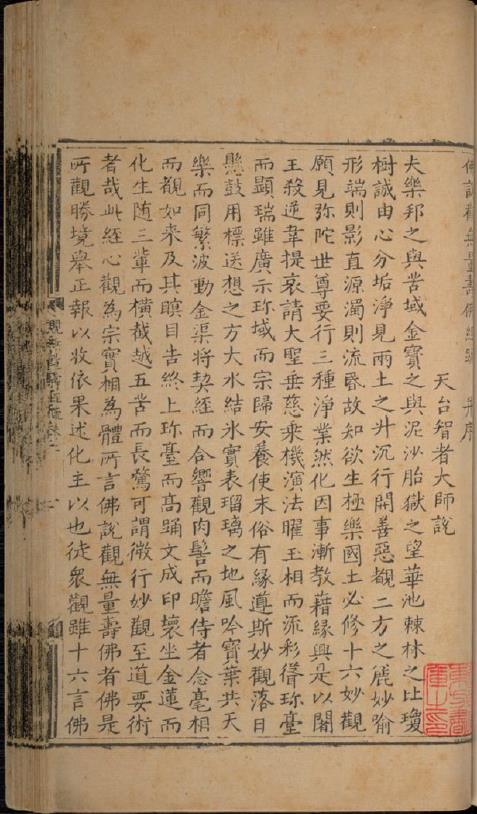 佛說觀無量壽佛經疏 并序
天台智者大師說
夫樂邦之與苦域金寶之與泥沙胎獄之望華池棘林之比瓊
樹誠由心分垢淨見兩土之升沉行開善惡覩二方之麁妙喻
形端則影直源濁則流昏故知欲生極樂國土必修十六妙觀
願見弥陀世尊要行三種淨業然化因事漸教藉緣興是以闍
王殺逆韋提哀請大聖垂慈乘機演法曜玉相而流彩聳珎臺
而顯瑞雖廣示珎域而宗歸安養使末俗有緣遵斯妙觀落日
懸鼓用標送想之方大水結氷實表瑠璃之地風吟寶葉共天
樂而同繁波動金渠將契經而合響觀肉髻而瞻侍者念毫相
而覩如來及其瞑目告終上珎臺而高踊文成印壞坐金蓮而
化生随三輩而橫截越五苦而長騖可謂微行妙觀至道要術
者哉此經心觀為宗實相為體所言佛說觀無量壽佛者佛是
所觀勝境舉正報以收依果述化主以包徒衆觀雖十六言佛